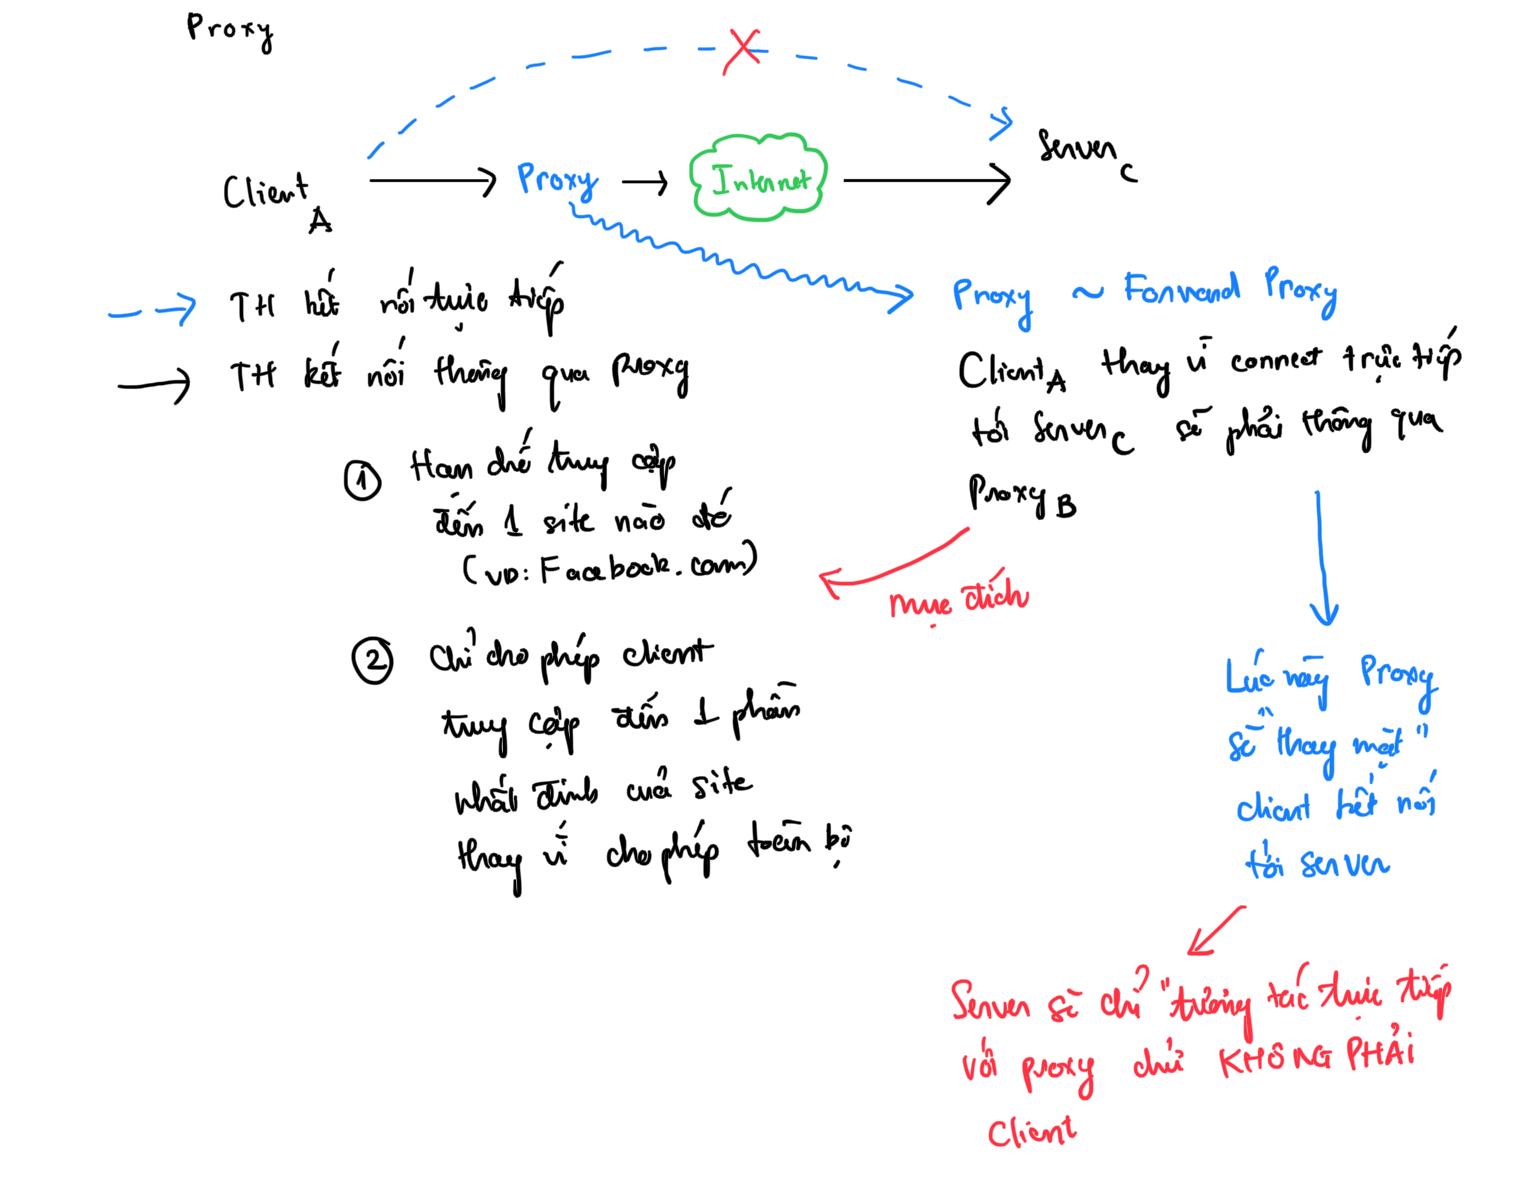 Proxy
Client A
Proxy
Internet
Server C
TH kết nối trực tiếp
TH kết nối thông qua proxy
① Hạn chế truy cập
đến 1 site nào đó
(VD: Facebook.com)
② Chỉ cho phép client
truy cập đến 1 phần
nhất định của site
thay vì cho phép toàn bộ
Proxy ~ Forward Proxy
Client A thay vì connect trực tiếp
tới Server C sẽ phải thông qua
Proxy B
mục đích
Lúc này Proxy
sẽ "thay mặt"
client kết nối
tới server
Server sẽ chỉ "tương tác trực tiếp
với proxy chứ KHÔNG PHẢI
Client